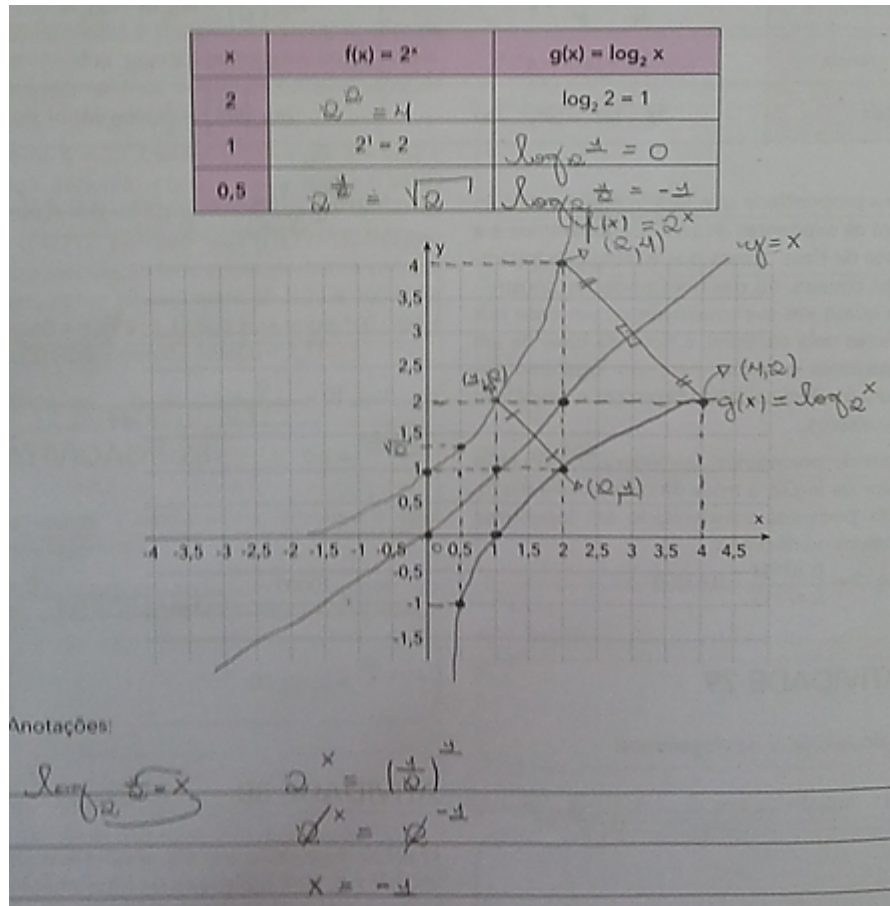 x f(x) = 2ˣ g(x) = log₂ x
2 2² = 4 log₂ 2 = 1
1 2¹ = 2 log₂ 1 = 0
0,5 2^½ = √2 log₂ ½ = -1
f(x) = 2ˣ
y (2,4) y = x
4
3,5
3
2,5 (1,2) (4,2)
2 g(x) = log₂ x
1,5
√2
1 (2,1)
0,5
x
-4 -3,5 -3 -2,5 -2 -1,5 -1 -0,5 0 0,5 1 1,5 2 2,5 3 3,5 4 4,5
-0,5
-1
-1,5
Anotações:
log₂ ½ = x 2ˣ = (1/2)¹
2ˣ = 2⁻¹
x = -1